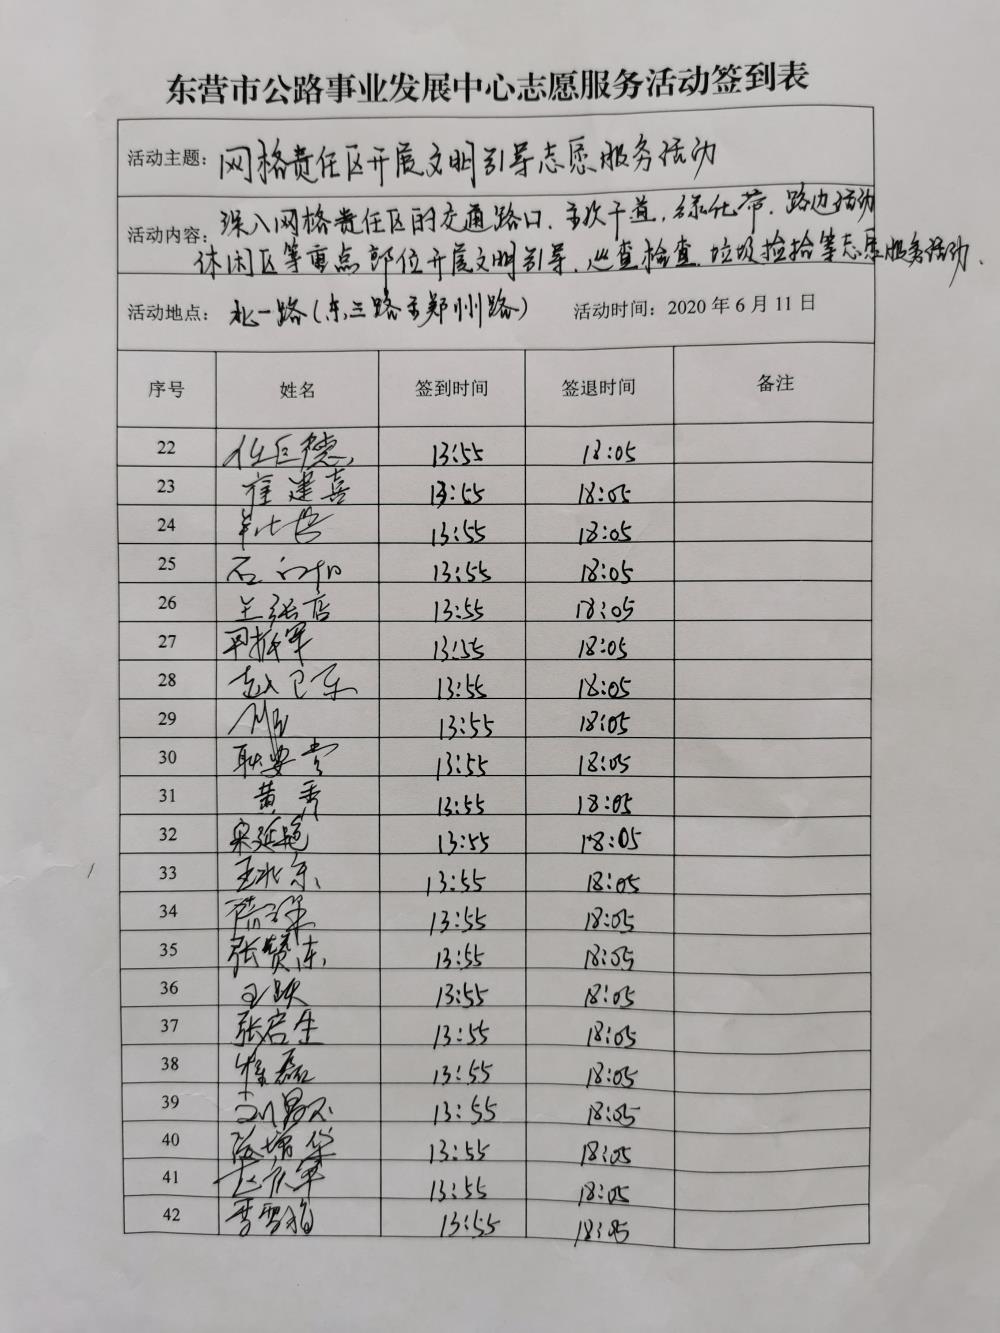 东营市公路事业发展中心志愿服务活动签到表
活动主题：网格责任区开展文明引导志愿服务活动
活动内容：深入网格责任区的交通路口、主次干道、绿化带、路边活动
休闲区等重点部位开展文明引导、巡查检查、垃圾捡拾等志愿服务活动.
活动地点：北一路(东三路至郑州路) 活动时间：2020 年 6 月 11 日
序号 姓名 签到时间 签退时间 备注
22 任巨德 13:55 18:05
23 崔建喜 13:55 18:05
24 13:55 18:05
25 石 13:55 18:05
26 王张店 13:55 18:05
27 13:55 18:05
28 赵卫东 13:55 18:05
29 13:55 18:05
30 耿安贵 13:55 18:05
31 黄秀 13:55 18:05
32 宋延艳 13:55 18:05
33 王北东 13:55 18:05
34 13:55 18:05
35 张赞东 13:55 18:05
36 王跃 13:55 18:05
37 张启生 13:55 18:05
38 崔磊 13:55 18:05
39 13:55 18:05
40 陈增华 13:55 18:05
41 赵庆军 13:55 18:05
42 李雪梅 13:55 18:05